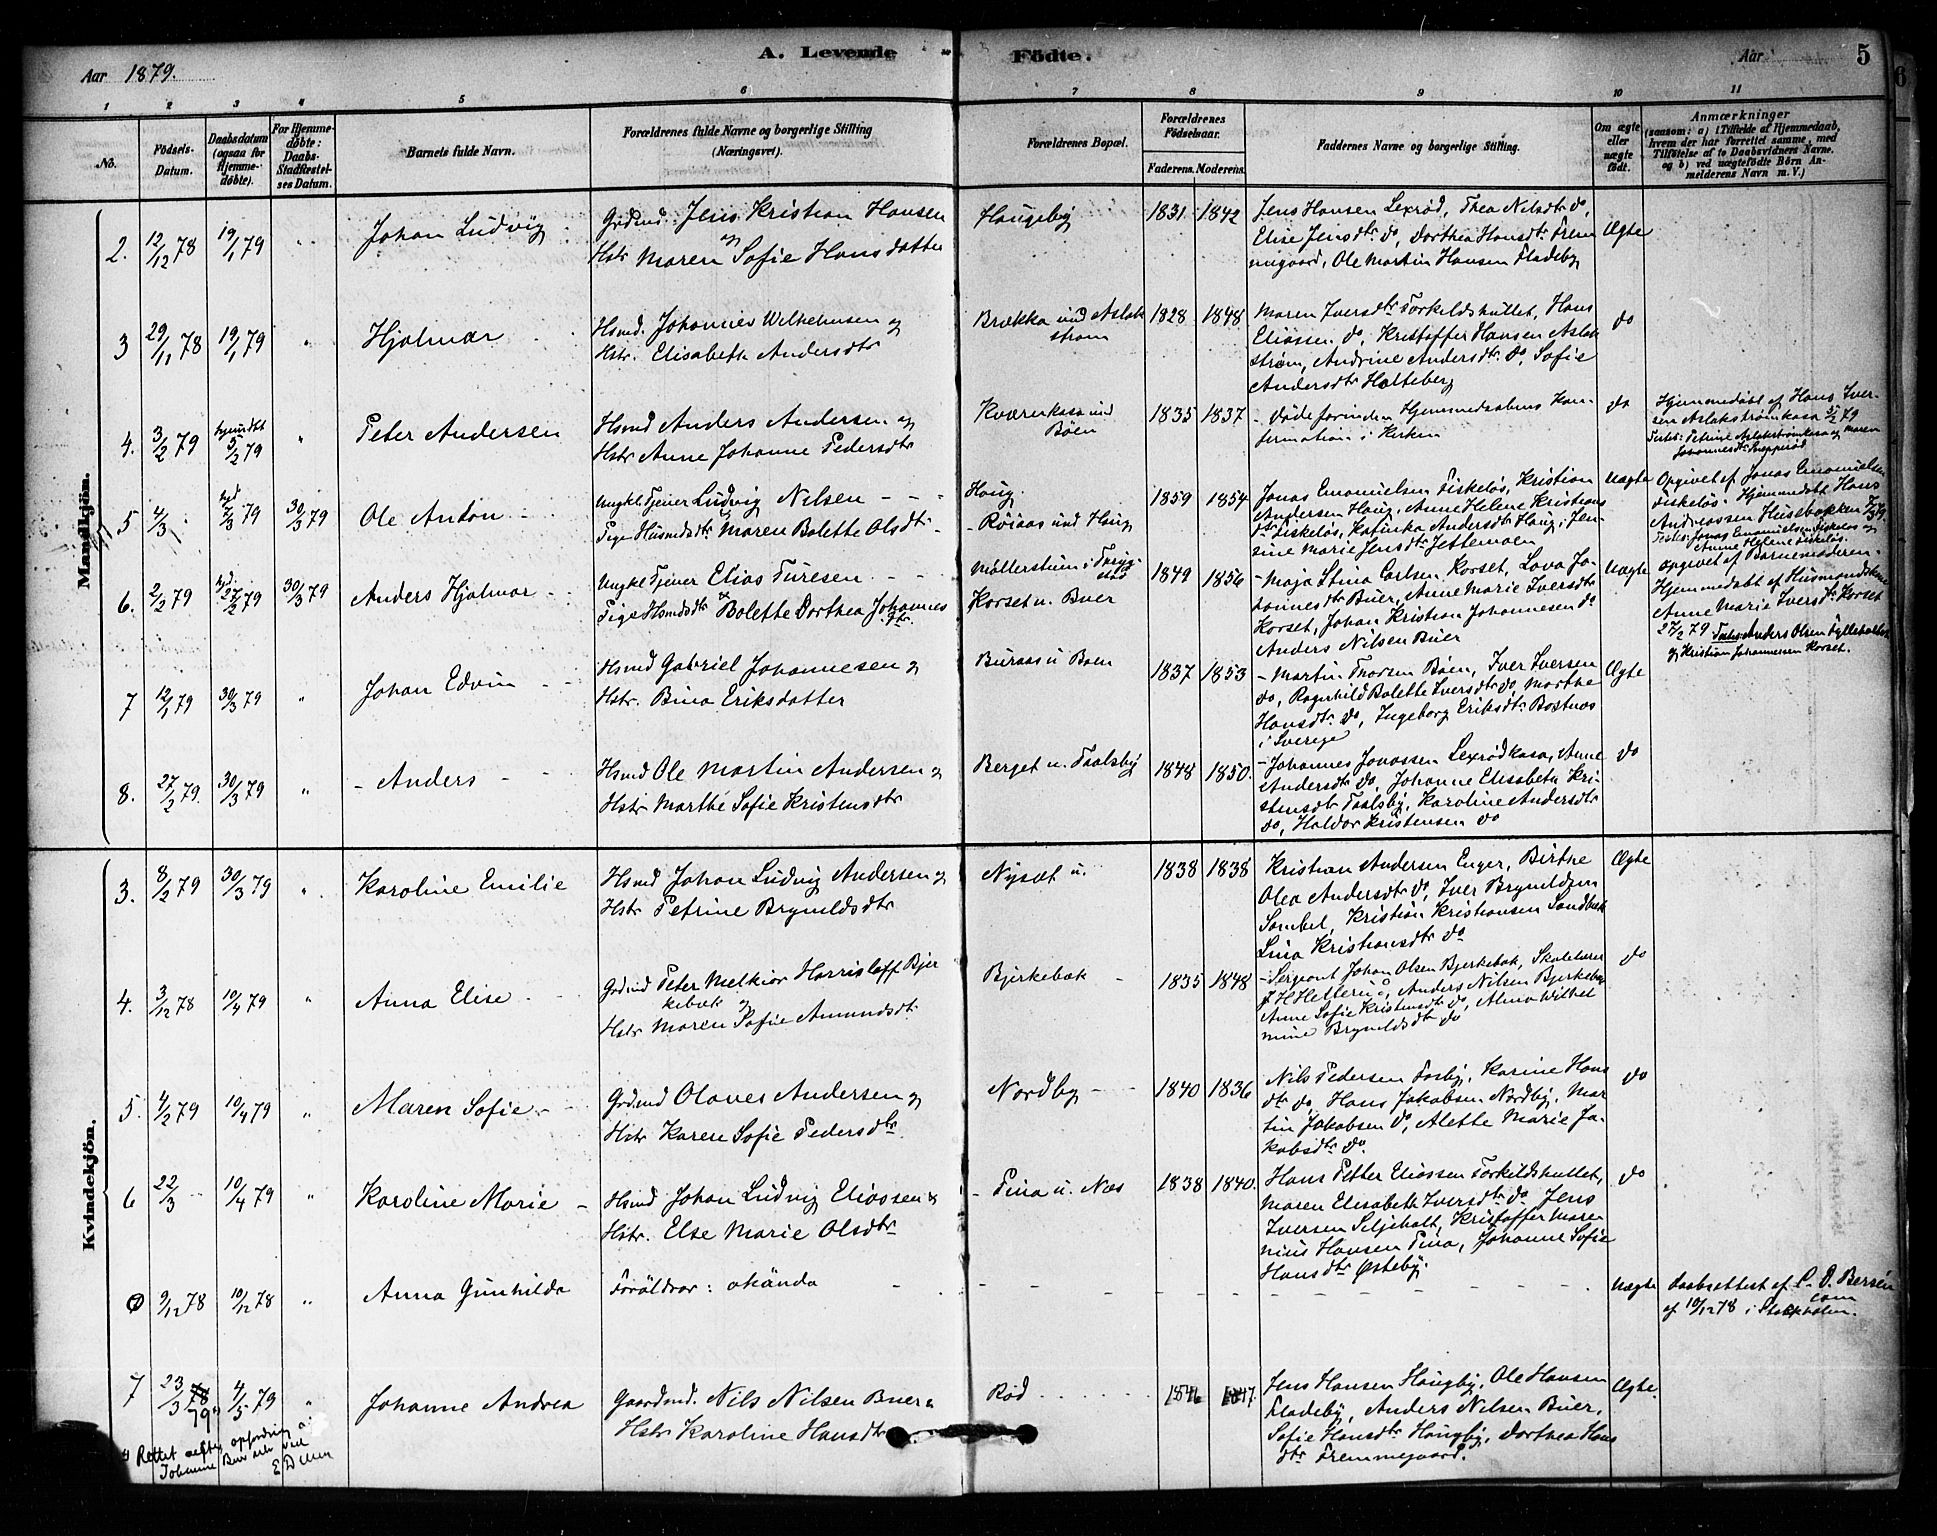 A. Levende Födte.
Aar 1879.
Aar
5
6
1 2 3 4 5 6 7 8 9 10 11
No.
Födsels-Datum.
Daabsdatum (ogsaa for Hjemme-døbte).
For Hjemme-døbte: Daabs-Stadfæstel-ses Datum.
Barnets fulde Navn.
Forældrenes fulde Navne og borgerlige Stilling
(Næringsvei).
Forældrenes Bopæl.
Forældrenes Födselsaar.
Faderens. Moderens.
Faddernes Navne og borgerlige Stilling.
Om ægte eller uægte født.
Anmærkninger
(saasom: a) i Tilfælde af Hjemmedaab,
hvem der har forrettet samme, med
Tilføielse af to Daabsvidners Navne.
og b) ved uægtefødte Børn An-
melderens Navn m. V.)
Mandkjön.
2. 12/12 78 19/1 79 " Johan Ludvig
Grdmd. Jens Kristian Hansen
og
Hstr Maren Sofie Hansdatter
Haugeby
1831 1842
Jens Hansen Lexrød, Thea Nilsdtr do,
Elise Jensdtr do, Dorthea Hansdtr Frem
megaard, Ole Martin Hansen Fladeby
Ægte
3 29/11 78 19/1 79 " Hjalmar
Hsmd. Johannes Wilhelmsen og
Hstr. Elisabeth Andersdtr
Brækka und Aslak
strøm
1828 1848
Maren Iversdtr Torkildshullet, Hans
Eliassen do, Kristoffer Hansen Aslak
strøm, Andrine Andersdtr do, Sofie
Andersdtr Holteberg
do
4. 3/2 79 hjemdbt 5/2 79 " Peter Andersen
Hsmd Anders Andersen og
Hstr Anne Johanne Pedersdtr
Kværnkasa und
Böen
1835 1837
- Døde forinden Hjemmedaabens Kon-
firmation i Kirken
do
Hjemmedøbt af Hans Iver-
sen Aslakstrømkasa 5/2 79
Testes: Petrine Aslakstrømkasa og Maren
Johannesdtr
5 4/3 - hjd 7/3 79 30/3 79 Ole Anton
Ungkl Tjener Ludvig Nilsen - - -
Pige Husmdsdtr Maren Bolette Olsdtr -
Haug
- Röiaas und Haug
1859 1854
Jonas Emanuelsen Fiskeløs, Kristian
Andersen Haug, Anne Helene Kristians
dtr Fiskeløs, Kathinka Andersdtr Haug, Jen-
sine Marie Jensdtr Jettemoen
Uægte
Opgivet af Jonas Emanuelsen
Fiskeløs Hjemmedøbt Hans
Andreassen Husebakken 7/3 79.
Testes: Jonas Emanuelsen Fiskeløs og
Anne Helene Fiskeløs.
6. 2/2 79 hjd. 27/2 79 30/3 79 Anders Hjalmar
Ungkl Tjener Elias Turesen - - -
Pige Hsmdsdtr Bolette Dorthea Johannes
dtr.
Møllerstuen i Tryg
stad
Korset u. Buer
1849 1856
- Maja Stina Carlsen Korset, Lova Jo-
hannesdtr Buer, Anne Marie Iversdtr
Korset, Johan Kristian Johannesen do
Anders Nilsen Buer
Uægte
Opgivet af Barnemoderen.
Hjemmedøbt af Husmandskone
Anne Marie Iversdtr Korset
27/2 79 Testes: Anders Olsen
og Kristian Johannessen Korset.
7 12/1 79 30/3 79 " Johan Edvin
Hsmd Gabriel Johannesen og
Hstr. Bina Eriksdatter
Buraas u Boen
1837 1853
- Martin Thorsen Böen, Iver Iversen
do, Ragnhild Bolette Iversdtr do, Marthe
Hansdtr do, Ingeborg Eriksdtr Bostnæs
i Sverige
Ægte
8. 27/2 79. 30/3 79 " - Anders - -
Hsmd Ole Martin Andersen og
Hstr Marthe Sofie Kristensdtr
Berget u. Taalsby
1848 1850.
- Johannes Jonassen Lexrødkasa, Anne
Andersdtr do, Johanne Elisabeth Kri-
stensdtr Taalsby, Karoline Andersdtr
do, Haldor Kristensen do
do
Kvindekjön.
3. 8/2 79 30/3 79 " Karoline Emilie
Hsmd Johan Ludvig Andersen og
Hstr Petrine Bryneldsdtr
Nysæt u.
1838 1838
Kristian Andersen Enger, Birthe
Olea Andersdtr do, Iver Bryneldsen
Sambøl, Kristian Kristiansen Sandbæk
Lina Kristiansdtr do
Ægte
4. 3/12 78 10/4 79 " Anna Elise
Grdmd Peter Melkior Harrisloff Bjer
kebæk og
Hstr Maren Sofie Amundsdtr
Bjerkebæk -
1835 1848
- Sergeant Johan Olsen Bjerkebæk, Skolelærer
, Anders Nilsen Bjerkebæk
Anne Sofie Kristensdtr do, Alma Wilhel
mine Bryneldsdtr do
do
5. 4/2 79 10/4 79 " Maren Sofie -
Grdmd Olaves Andersen og
Hstr Karen Sofie Pedersdtr
Nordby -
1840 1836
Nils Pedersen Fosby, Karine Hans
dtr do, Hans Jakobsen Nordby, Mar
tin Jakobsen do, Alette Marie Ja-
kobsdtr do.
do
6 22/3 - 10/4 79 " Karoline Marie -
Hsmd Johan Ludvig Eliassen &
Hstr. Else Marie Olsdtr
- Tina u. Næs
1838 1840.
Hans Petter Eliassen Torkildshullet,
Maren Elisabeth Iversdtr do, Jens
Iversen Seljeholt, Kristoffer Maren
nius Hansen Tina, Johanne Sofie
Hansdtr Østeby.
do
7 9/12 78 10/12 78 " Anna Gunhilda
Föräldrar: okända -
Uægte
Daabsattest af C. D. Bersén
af 10/12 78 i Stockholm.
7 23/3 78 79 4/5 79 " Johanne Andrea
Gaardmd. Nils Nilsen Buer &
Hstr Karoline Hansdtr
Rød
1846 1847.
Jens Hansen Haugby, Ole Hansen
Fladeby, Anders Nilsen Buer,
Sofie Hansdtr Haugby, Dorthea Hans
dtr Fremmegaard.
Ægte.
Rettet efter opfordring af
Johanne Buer